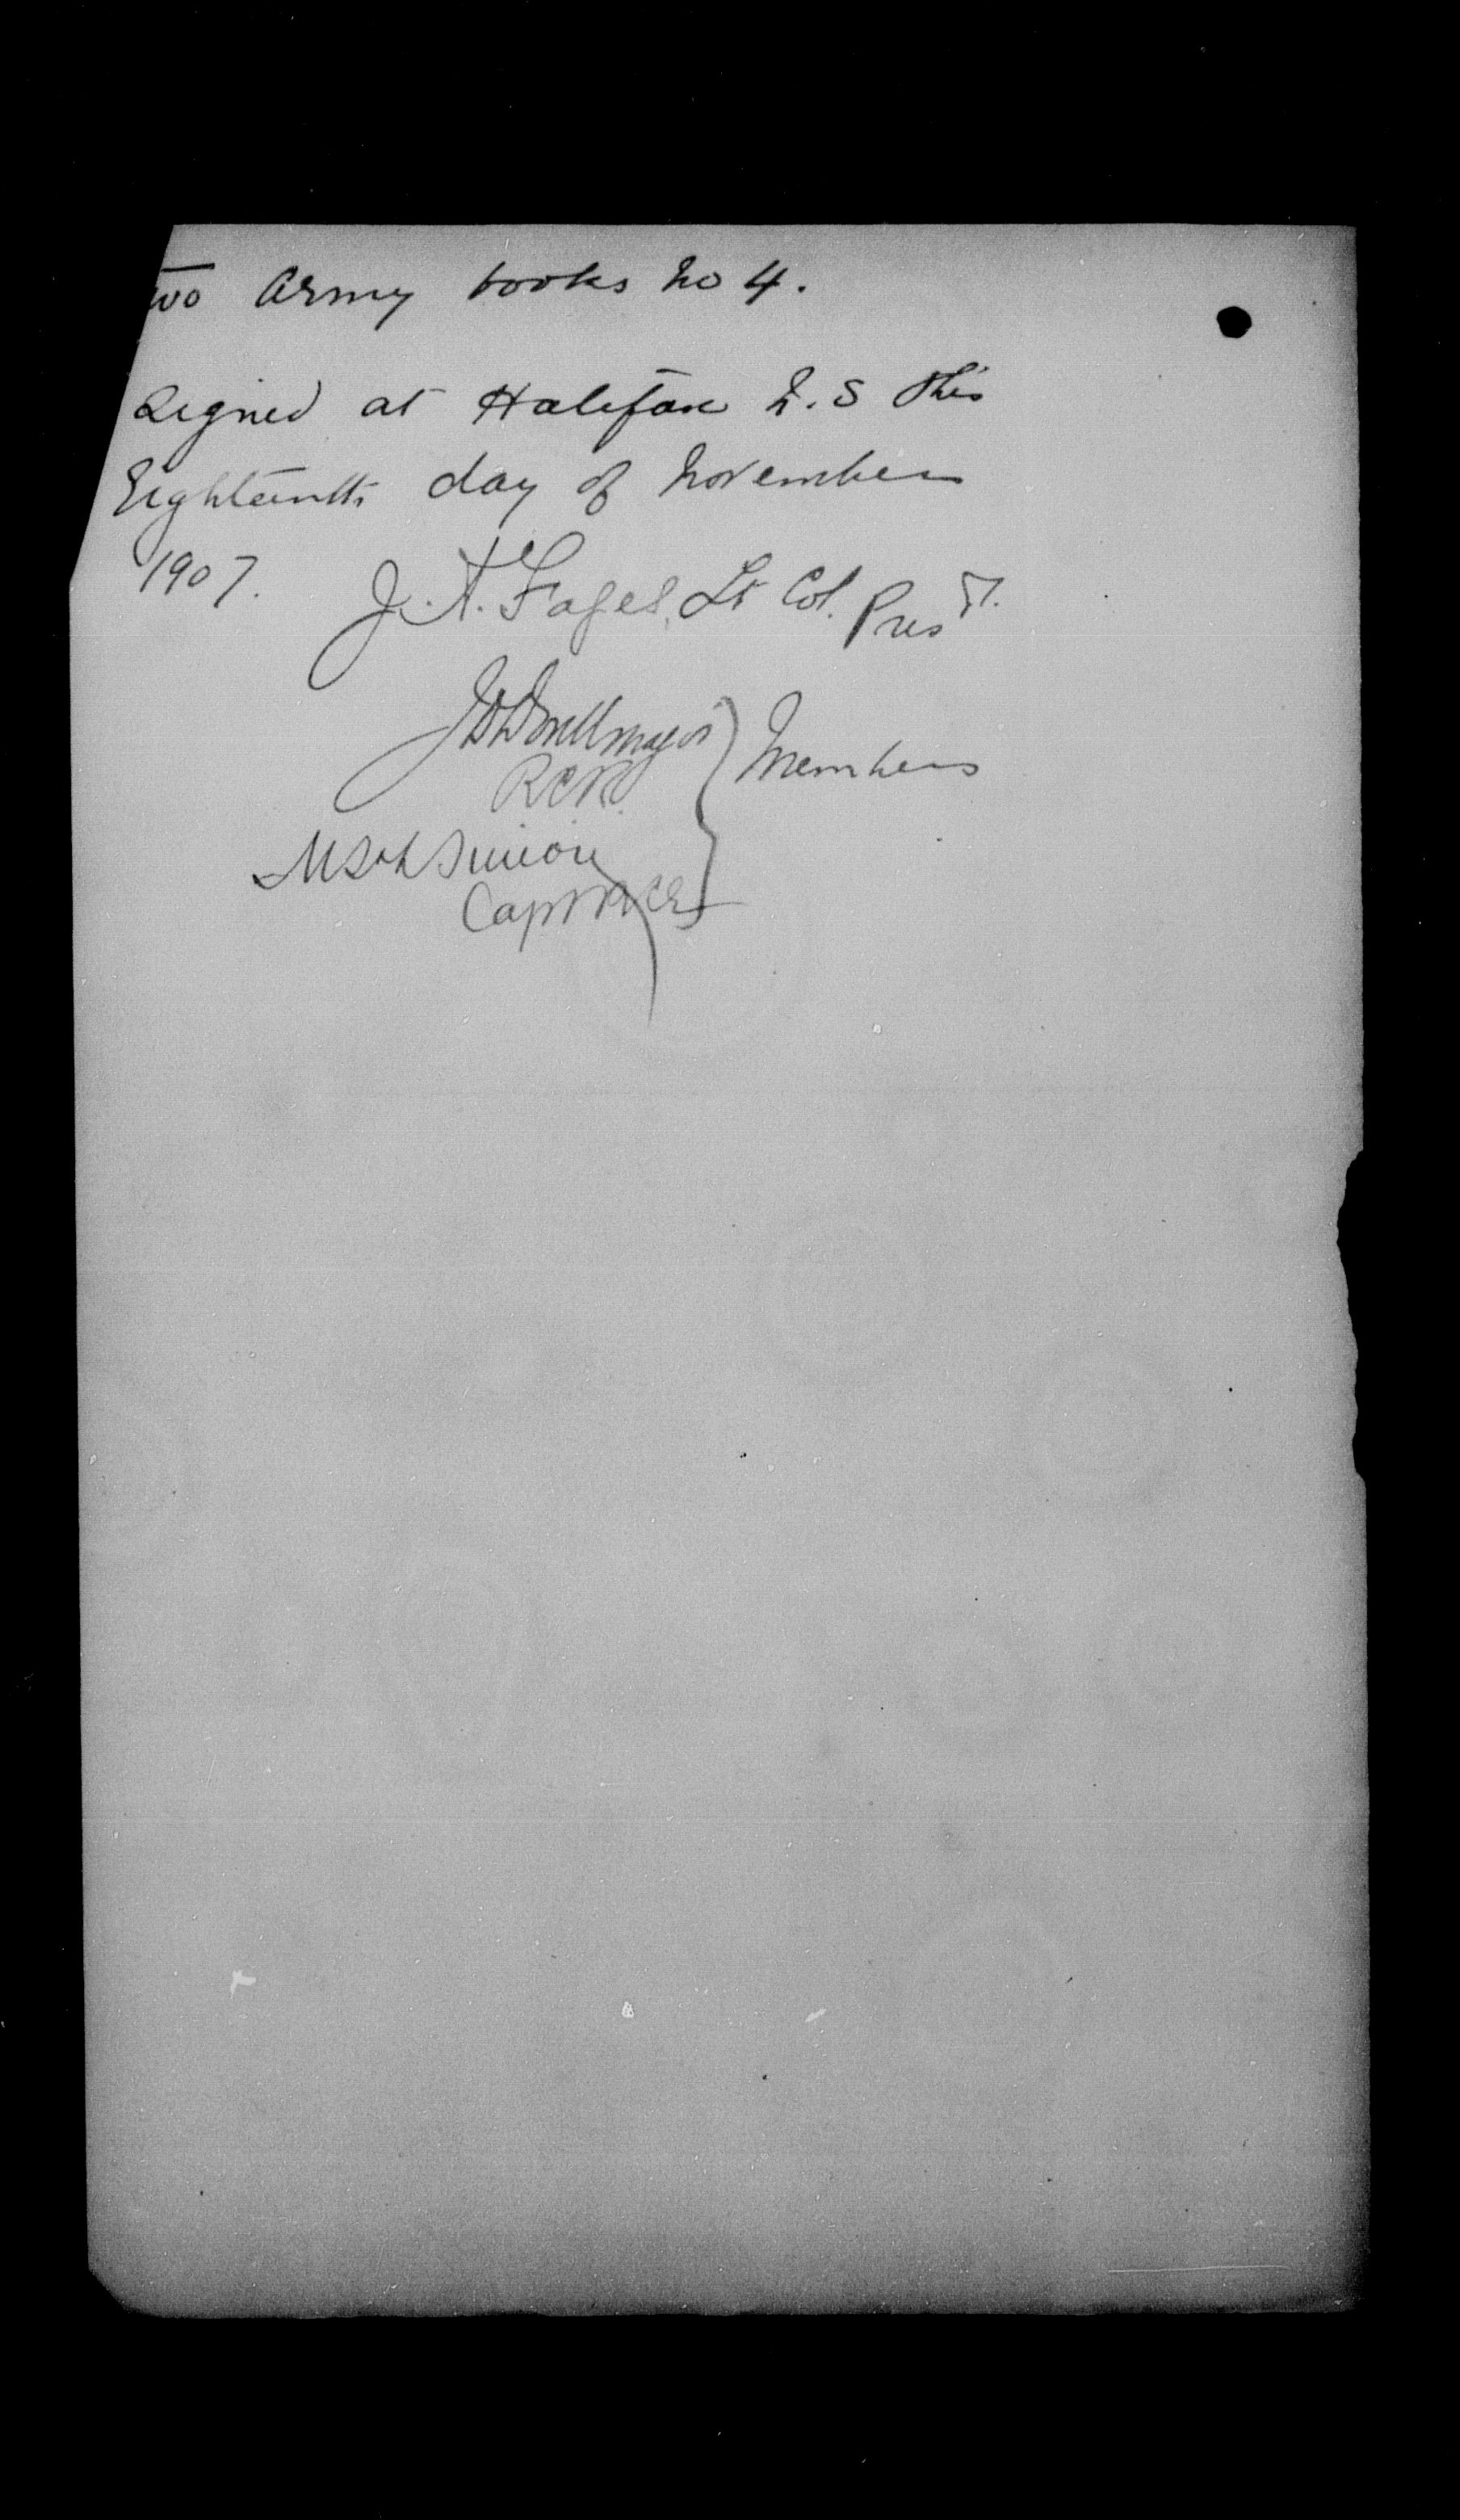 two Army books No 4.
Signed at Halifax N.S this
Eighteenth day of November
1907.
J. A. Fages, Lt Col. Prest.
Major
R.C.R.
Members
Capt RCE